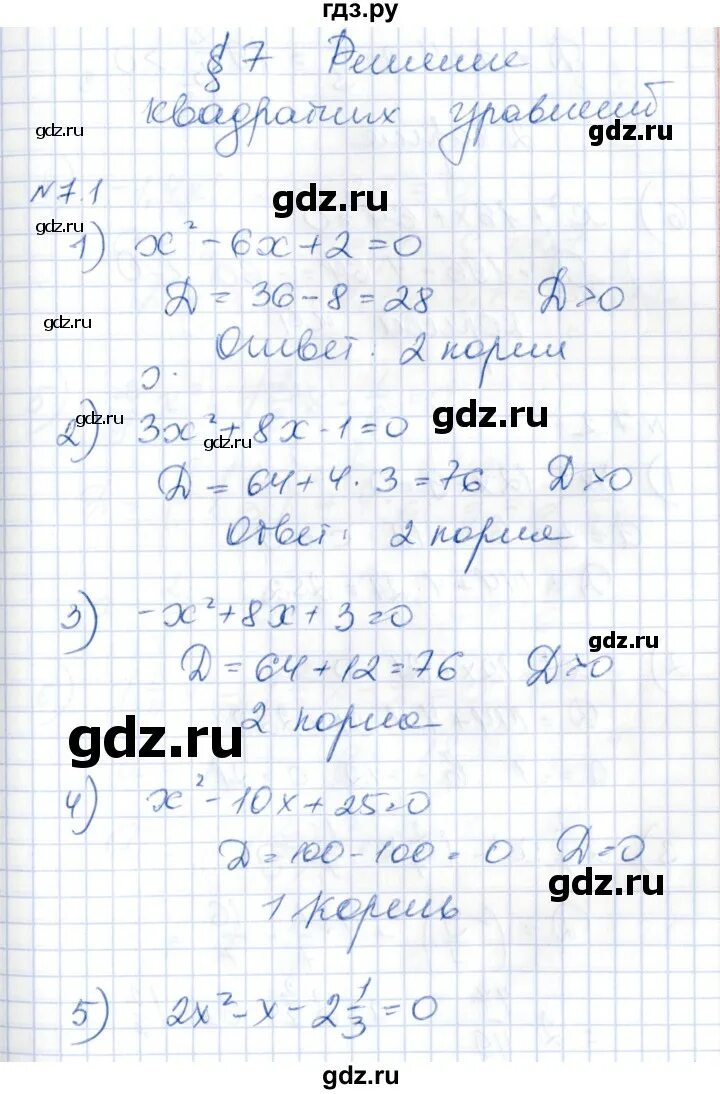 гдз.ру
§ 7 Решение
квадратных уравнений
gdz.ru
gdz.ru
№7.1
gdz.ru
gdz.ru
1) x² - 6x + 2 = 0
D = 36 - 8 = 28 D > 0
gdz.ru
Ответ: 2 корня
gdz.ru
gdz.ru
2) 3x² + 8x - 1 = 0
gdz.ru
D = 64 + 4 · 3 = 76 D > 0
Ответ: 2 корня
3) -x² + 8x + 3 = 0
gdz.ru
D = 64 + 12 = 76 D > 0
2 корня
gdz.ru
4) x² - 10x + 25 = 0
D = 100 - 100 = 0 D = 0
gdz.ru
1 корень
5) 2x² - x - 2 1/3 = 0
gdz.ru